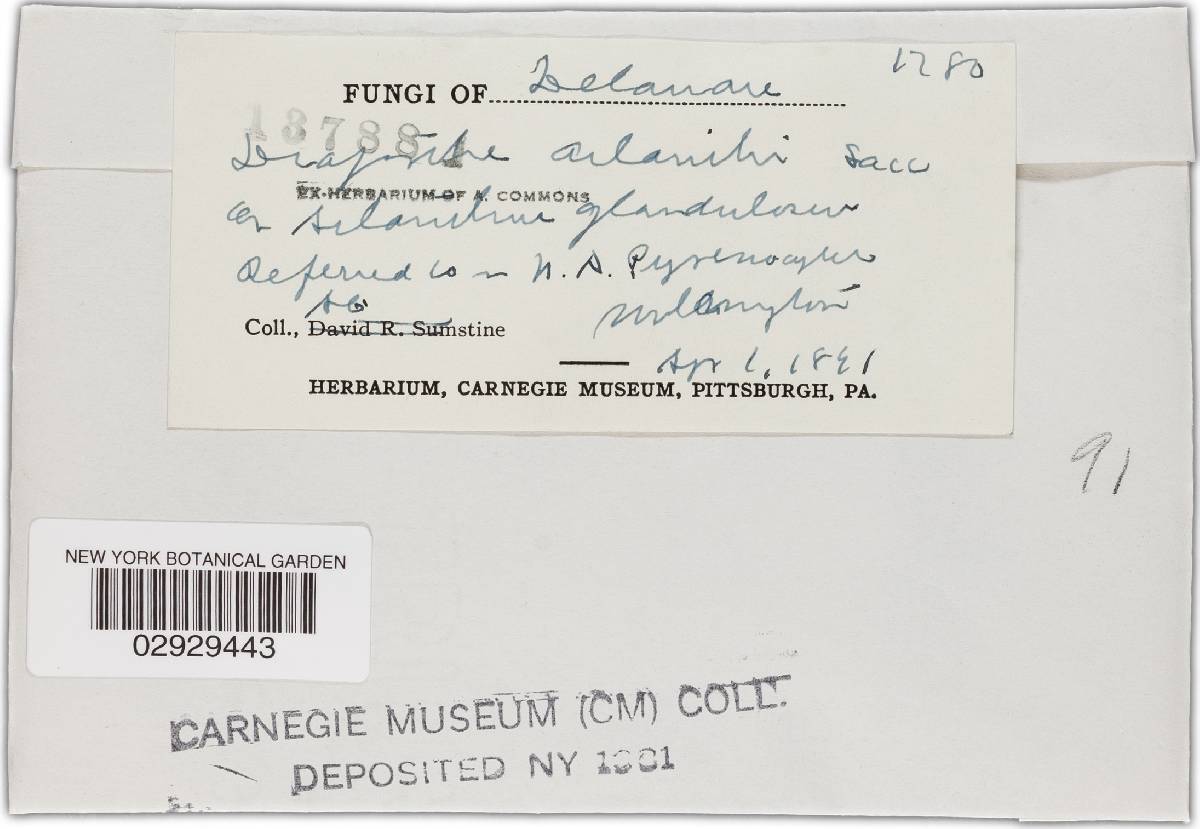 1780
FUNGI OF Delaware
13788
Diaporthe ailanthi Sacc
EX-HERBARIUM OF A. COMMONS
on Ailanthus glandulosus
Referred to in N. A. Pyrenomycetes
Coll., David R. Sumstine
Wilmington
Apr 1, 1891
HERBARIUM, CARNEGIE MUSEUM, PITTSBURGH, PA.
91
NEW YORK BOTANICAL GARDEN
02929443
CARNEGIE MUSEUM (CM) COLL.
DEPOSITED NY 1981